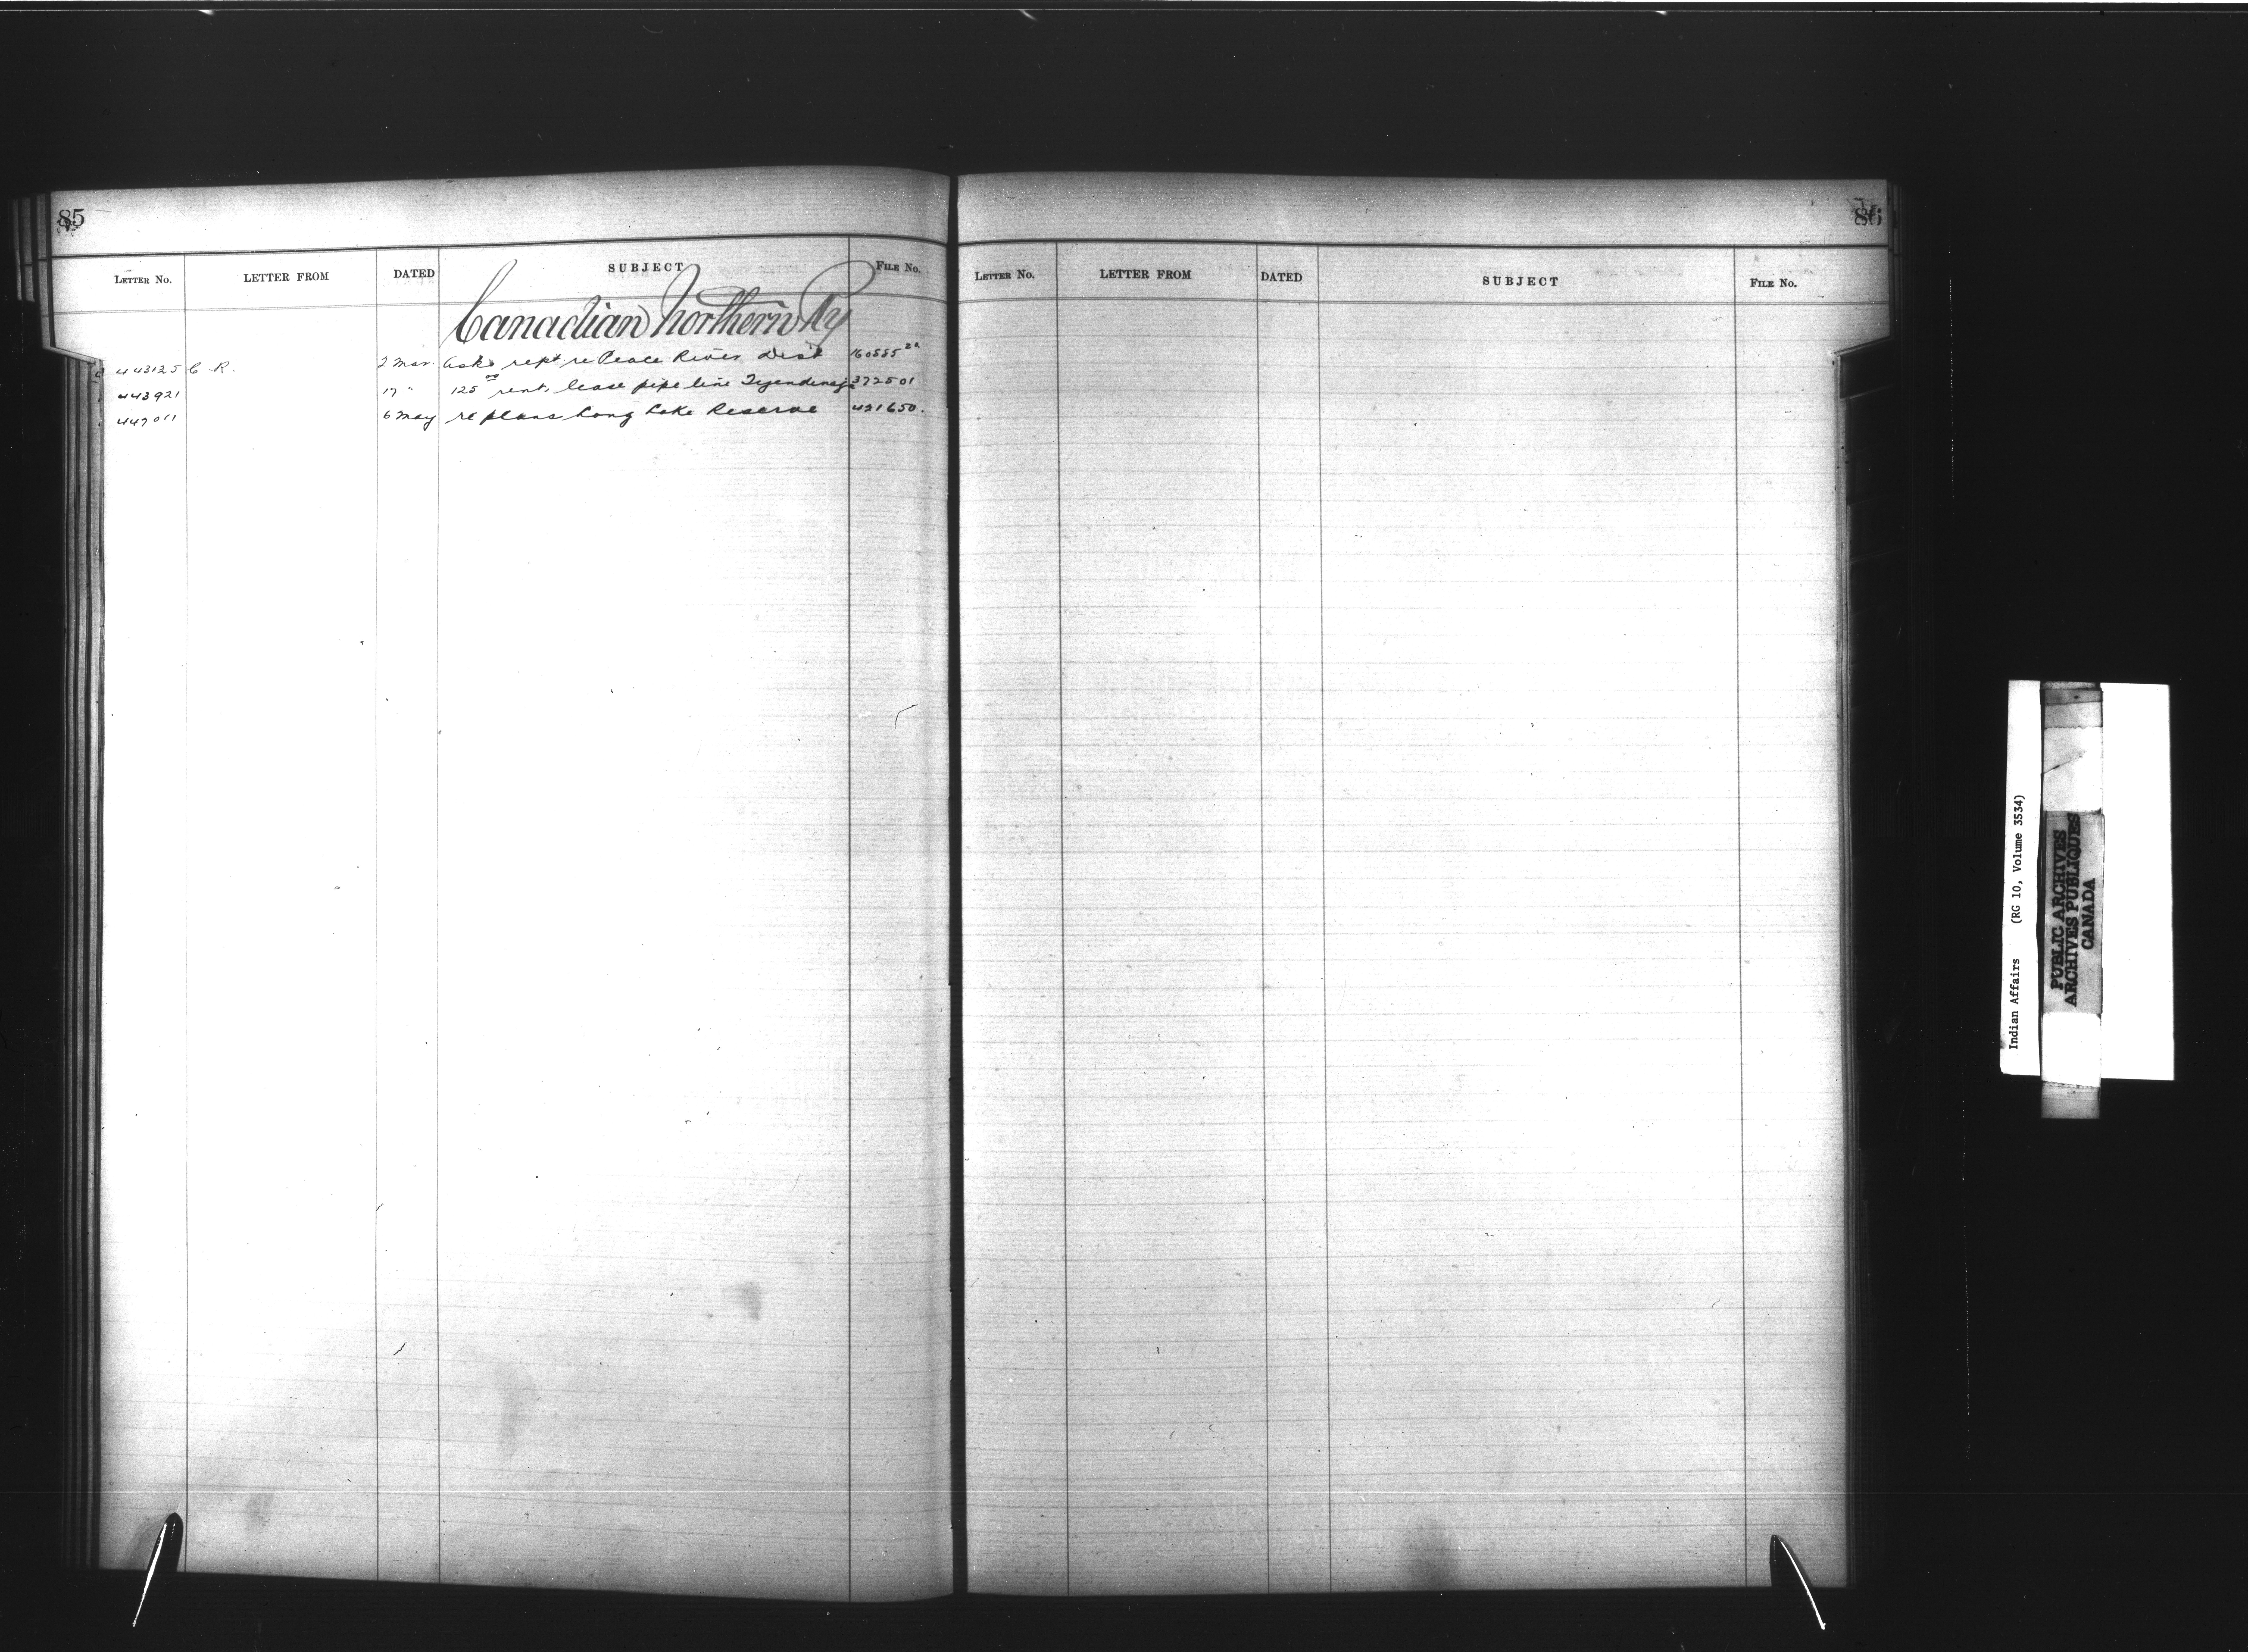 85
LETTER No. LETTER FROM DATED SUBJECT FILE No.
Canadian Northern Ry
443125 C. R. 2 Mar. Asks rept. re Peace River Dist 160555
443921 17 " 125 00 rent, lease pipe line Tyendinaga 372501
447011 6 May re plans Long Lake Reserve 421650.
86
LETTER No. LETTER FROM DATED SUBJECT FILE No.
Indian Affairs (RG 10, Volume 3534)
PUBLIC ARCHIVES
ARCHIVES PUBLIQUES
CANADA